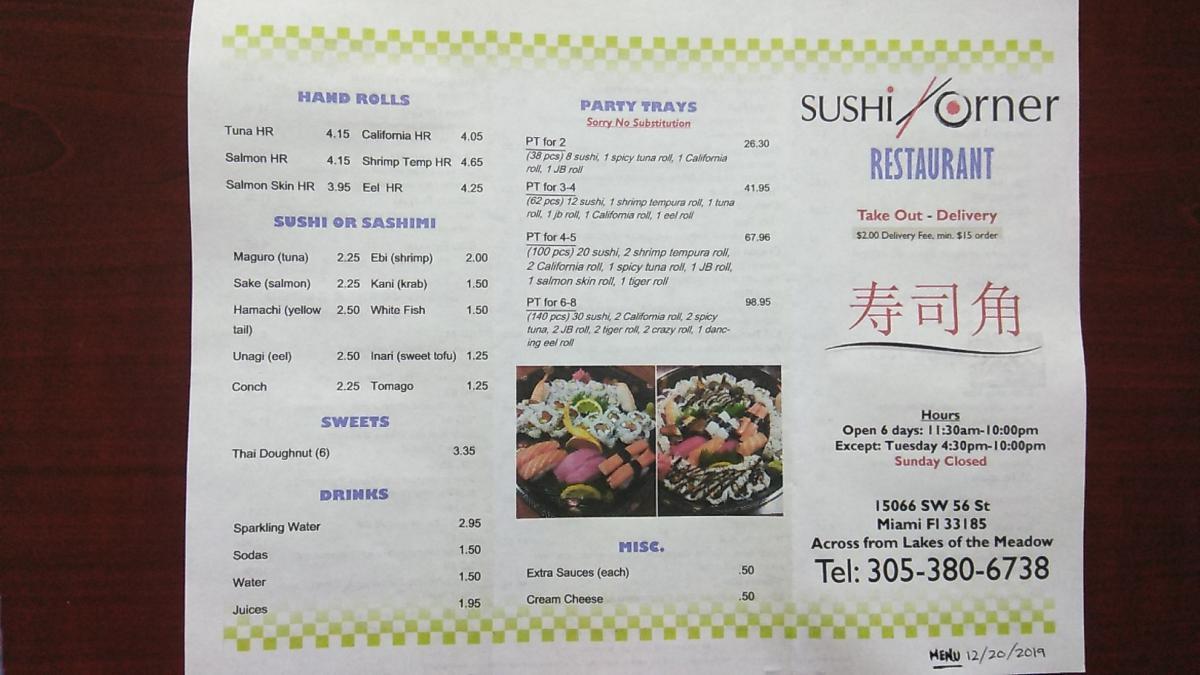 HAND ROLLS
Tuna HR 4.15 California HR 4.05
Salmon HR 4.15 Shrimp Temp HR 4.65
Salmon Skin HR 3.95 Eel HR 4.25
SUSHI OR SASHIMI
Maguro (tuna) 2.25 Ebi (shrimp) 2.00
Sake (salmon) 2.25 Kani (krab) 1.50
Hamachi (yellow 2.50 White Fish 1.50
tail)
Unagi (eel) 2.50 Inari (sweet tofu) 1.25
Conch 2.25 Tomago 1.25
SWEETS
Thai Doughnut (6) 3.35
DRINKS
Sparkling Water 2.95
Sodas 1.50
Water 1.50
Juices 1.95
PARTY TRAYS
Sorry No Substitution
PT for 2 26.30
(38 pcs) 8 sushi, 1 spicy tuna roll, 1 California
roll, 1 JB roll
PT for 3-4 41.95
(62 pcs) 12 sushi, 1 shrimp tempura roll, 1 tuna
roll, 1 jb roll, 1 California roll, 1 eel roll
PT for 4-5 67.96
(100 pcs) 20 sushi, 2 shrimp tempura roll,
2 California roll, 1 spicy tuna roll, 1 JB roll,
1 salmon skin roll, 1 tiger roll
PT for 6-8 98.95
(140 pcs) 30 sushi, 2 California roll, 2 spicy
tuna, 2 JB roll, 2 tiger roll, 2 crazy roll, 1 danc-
ing eel roll
MISC.
Extra Sauces (each) .50
Cream Cheese .50
SUSHi Korner
RESTAURANT
Take Out - Delivery
$2.00 Delivery Fee, min. $15 order
寿司角
Hours
Open 6 days: 11:30am-10:00pm
Except: Tuesday 4:30pm-10:00pm
Sunday Closed
15066 SW 56 St
Miami Fl 33185
Across from Lakes of the Meadow
Tel: 305-380-6738
MENU 12/20/2019